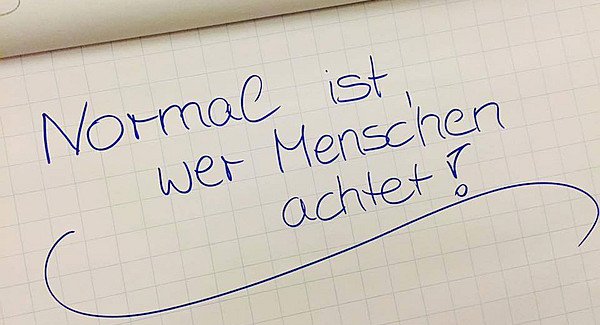 Normal ist,
wer Menschen
achtet!